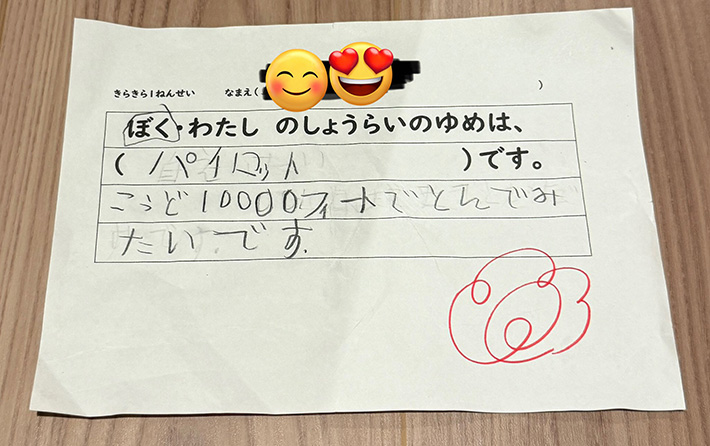 きらきら1ねんせい なまえ( )
ぼく・わたし のしょうらいのゆめは、
(パイロット )です。
こうど10000フィートでとんでみ
たいです.